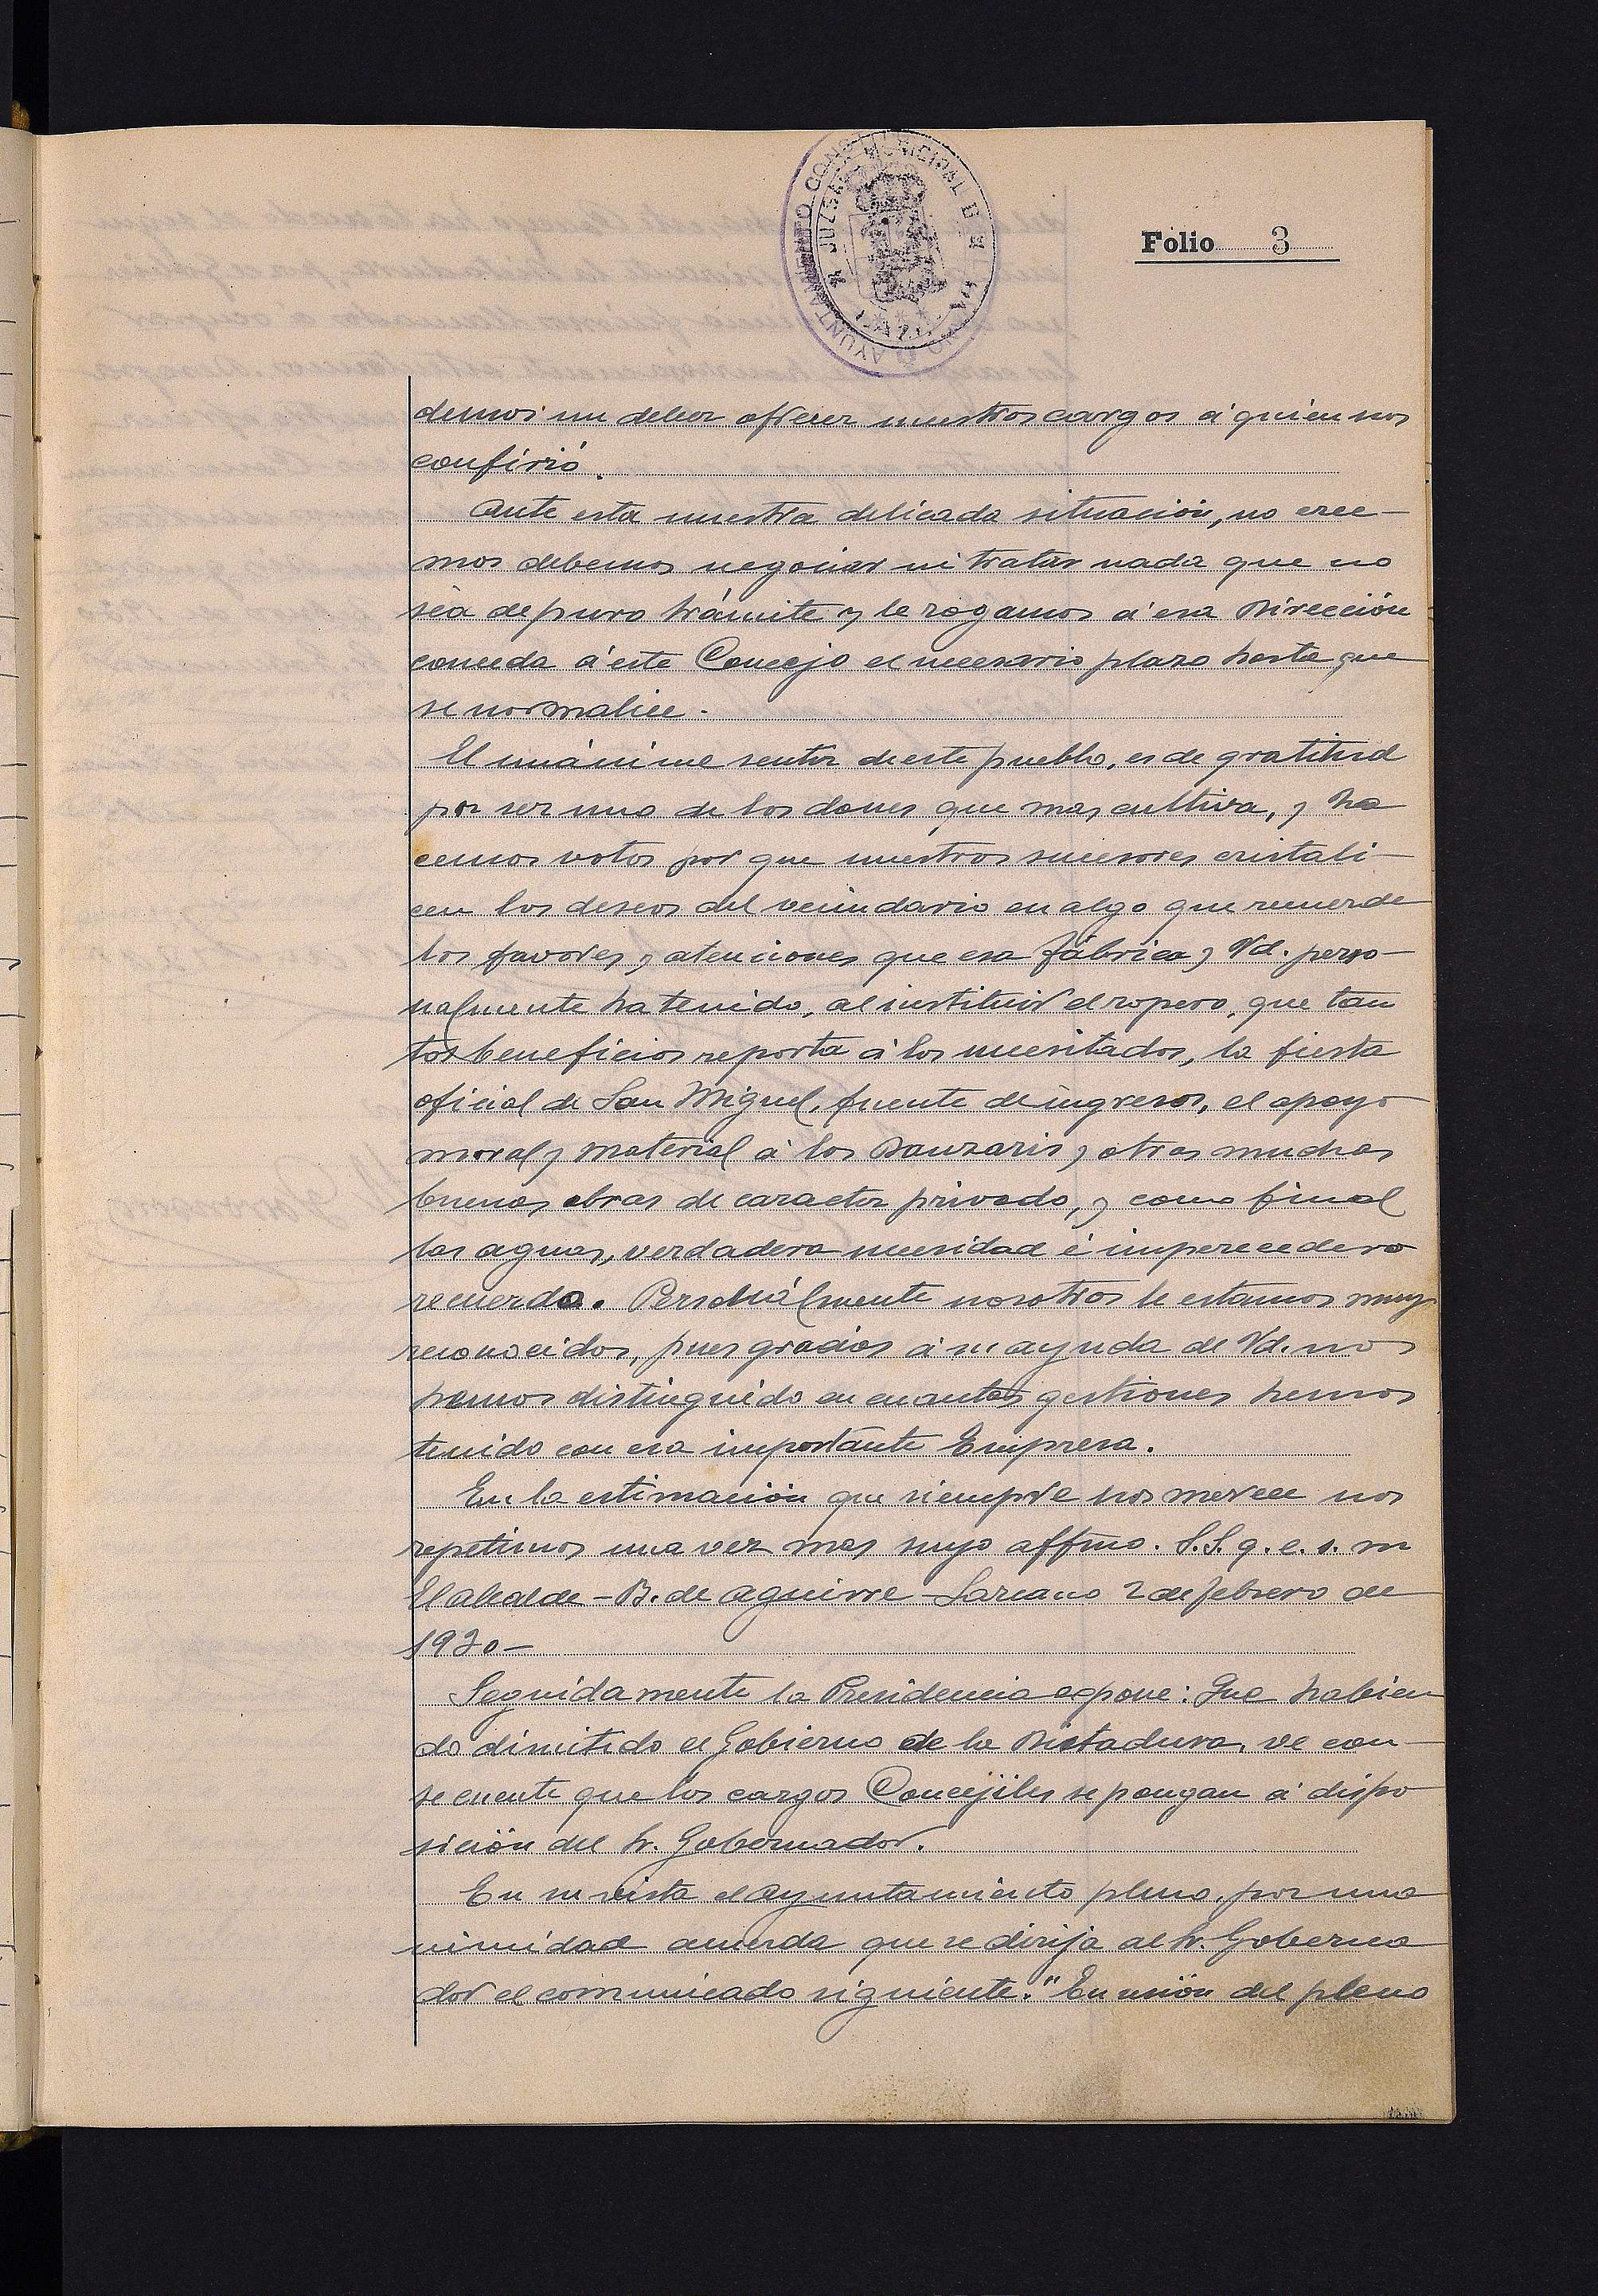 Folio 3
demos un deber ofrecer nuestros cargos á quien nos
confirió.
Ante esta nuestra delicada situación, no cree-
mos debemos negociar ni tratar nada que no
sea de puro trámite y le rogamos á esa Dirección
conceda á este Concejo el necesario plazo hasta que
se normalice.
El unánime sentir de este pueblo, es de gratitud
por ser uno de los dones que mas cultiva, y ha
cemos votos por que nuestros sucesores cristali-
cen los deseos del vecindario en algo que recuerde
los favores y atenciones que esa fábrica y Vd. perso-
nalmente ha tenido, al instituir el ropero, que tan
tos beneficios reporta á los necesitados, la fiesta
oficial de San Miguel, fuente de ingresos, el apoyo
moral y material á los Danzaris y otras muchas
buenas obras de caracter privado, y como final
las aguas, verdadera necesidad é imperecedero
recuerdo. Personalmente nosotros le estamos muy
reconocidos, pues gracias á su ayuda de Vd. nos
hemos distinguido en cuantas gestiones hemos
tenido con esa importante Empresa.
En la estimación que siempre nos merece nos
repetimos una vez mas suyo affmo. S.S. q. e. s. m
El alcalde - B. de Aguirre - Lazcano 2 de febrero de
1930 -
Seguidamente la Presidencia expone: Que habien
do dimitido el Gobierno de la Dictadura, ve con-
secuente que los cargos Concejiles se pongan á dispo
sición del Sr. Gobernador.
En su vista el Ayuntamiento pleno, por una
nimidad acuerda que se dirija al Sr. Goberna
dor el comunicado siguiente. "En unión del pleno